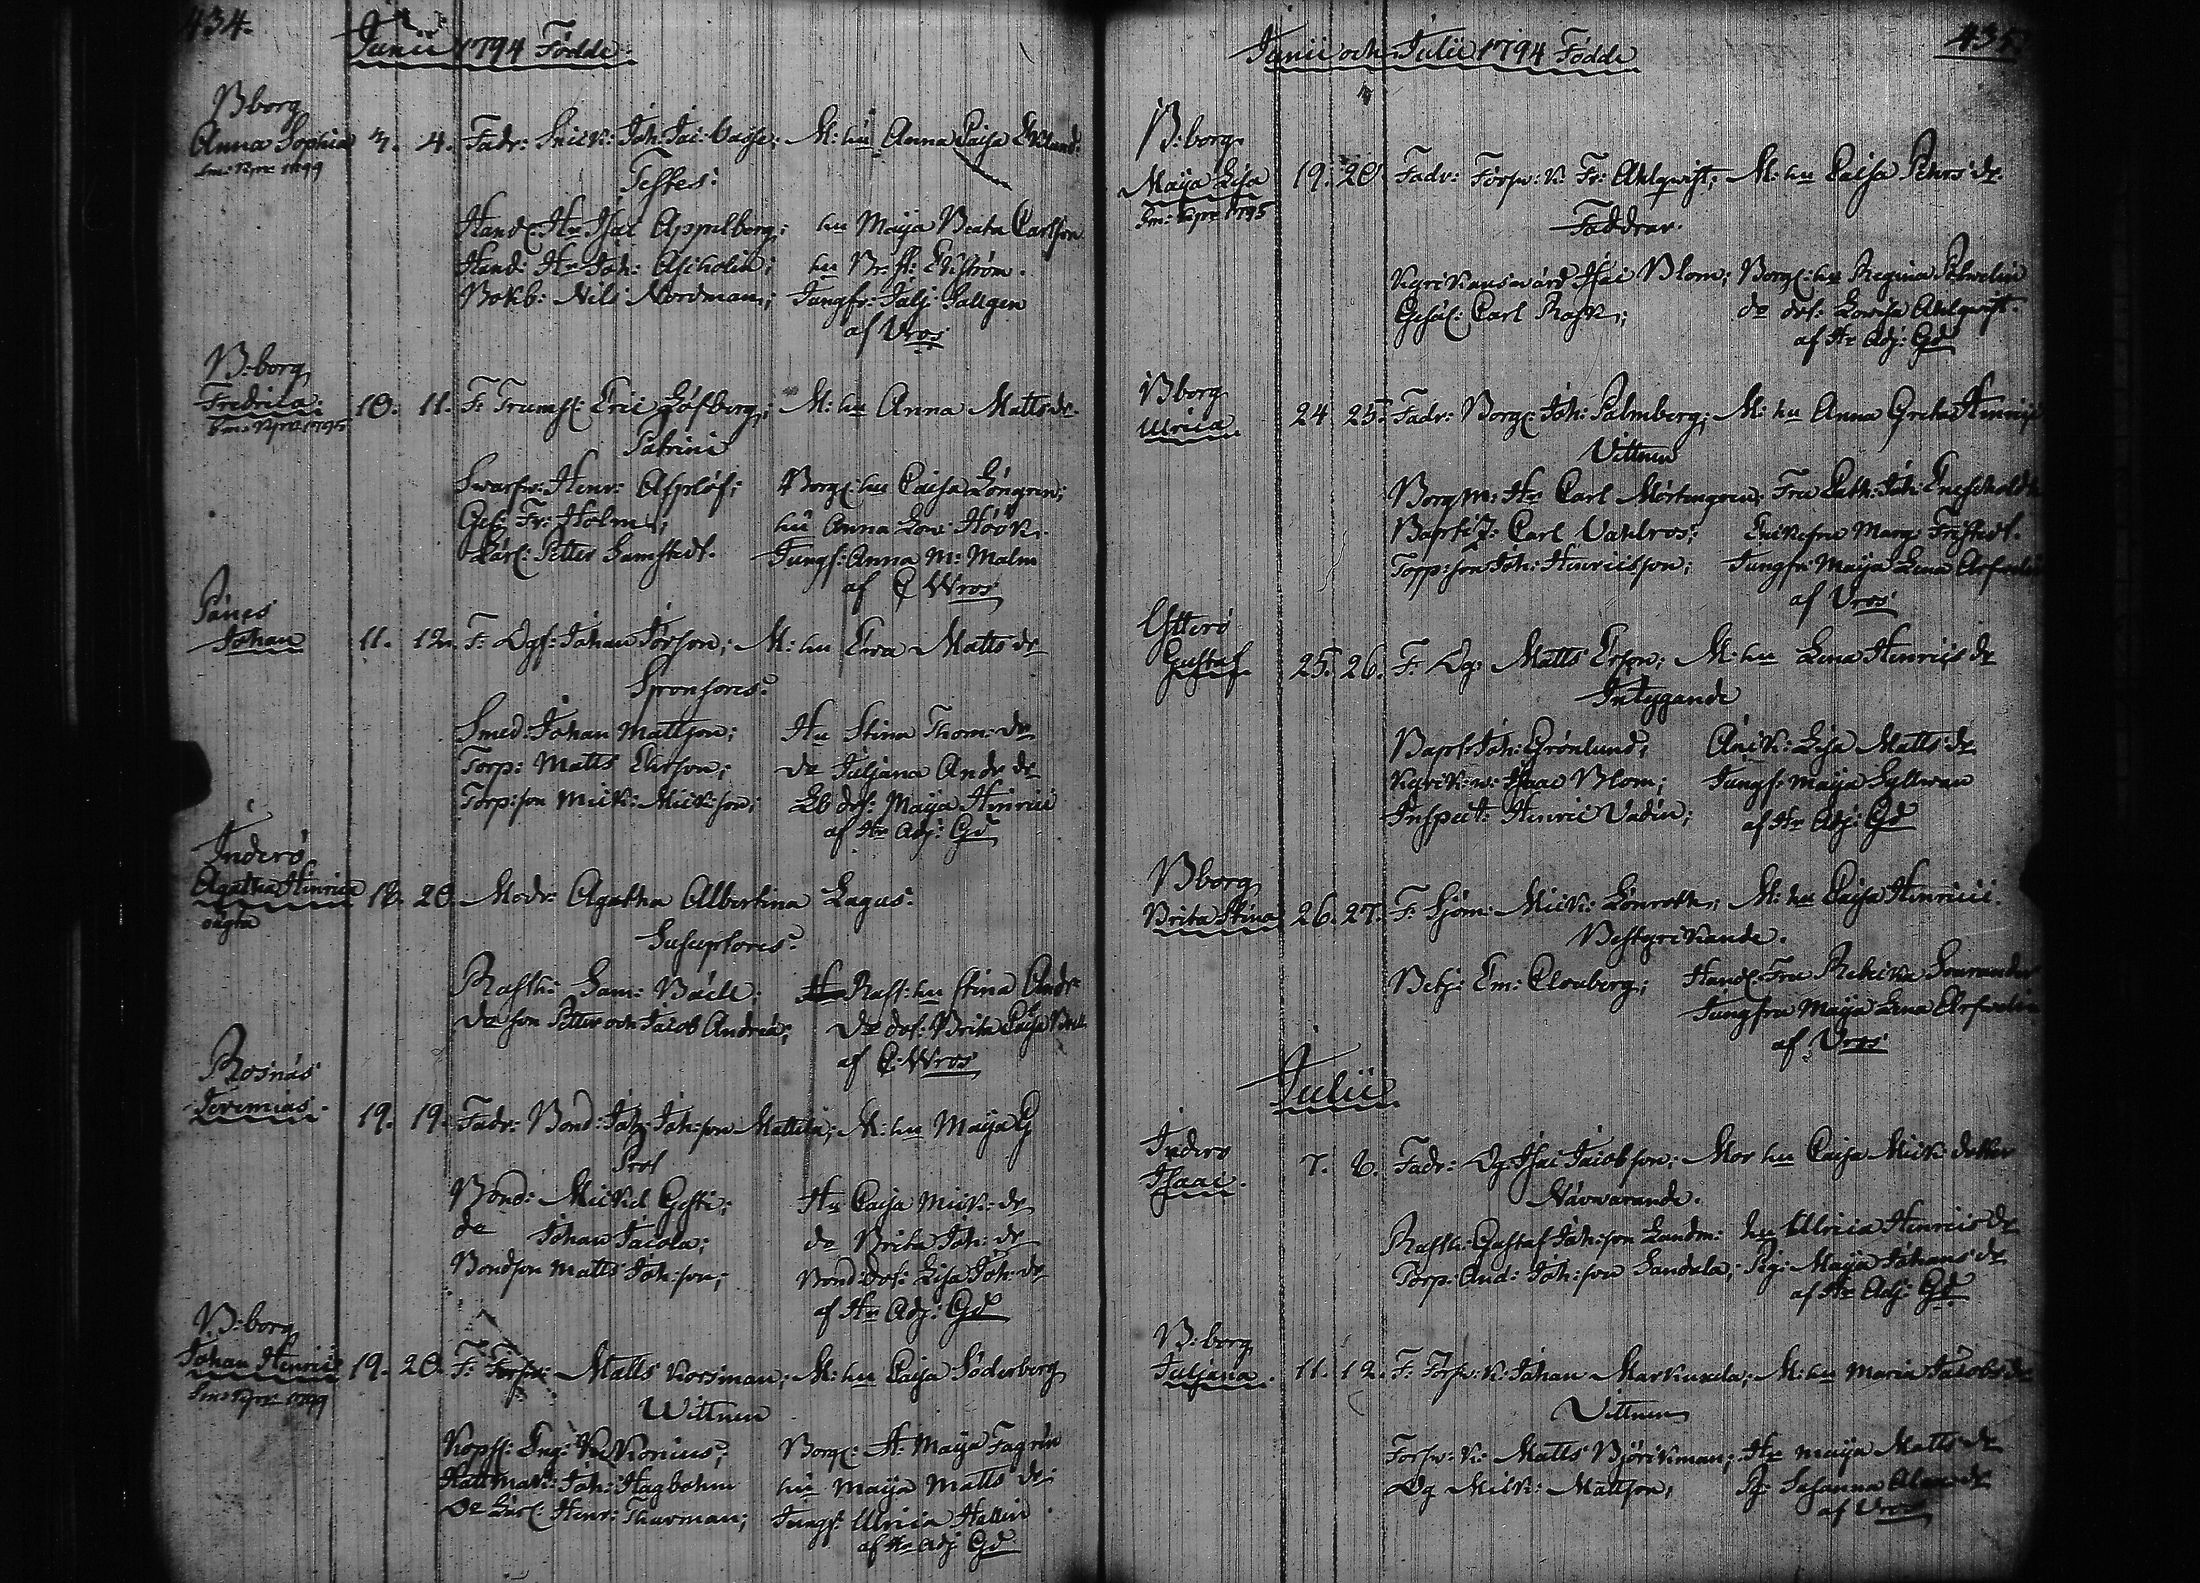 434.
Junii 1794 Födde
Bborg
Anna Sophia 3. 4. Fadr: Snick: Joh: Jac: M: hu Anna Caisa Eklund:
Testes:
Hand: Hr Isac Appelborg; hu Maija Beata Carlson
Hand: Hr Joh: Ascholin; hu Br: Ekström.
Bokb: Nils Nordman; Jungfr: Julj: Sallgen
af Vros
B:borg
Fredrica. 10. 11. F: Trumsl: Eric Löfberg; M: hu Anna Mattsdr
1795
Patrini
Swarfw: Henr: Asplöf; Borg: hu Caisa Löngren;
Ges: Fr: Holm; hu Anna Lov: Höök.
Lärl: Petter Lemstedt. Jungf: Anna M: Malm
af C Wros
Sånes
Johan 11. 12. F: Dgs: Johan Jörson; M: hu Ewa Matts dr
Sponsores:
Smed: Johan Mattson; Hu Stina Thom: dr
Torp: Matts Ericson; do Juljana Andr: dr
Torp: son Mick: Mickson; Lb dot: Maija Hinrics
af Hr Adj: Gd
Inderö
Agatha Hinrica 18. 20. Modr: Agatha Albertina Lagus:
oägta
Susceptores:
Rusth: Sam: Bäck: Rust: hu Stina Andr
do son Petter och Jacob Andreä; do dot: Brita Caisa
af C: Wros
Rosnäs
Jeremias. 19. 19. Fadr: Bond: Joh: Joh:son Mattila; M: hu Maija G
Bond: Mickel Gesti; Hu Caisa Mick: dr
do Johan Jacola; do Brita Joh: dr
Bondson Matts Joh:son; Bond: dot: Lisa Joh: dr
af Hr Adj: Gd
B:borg
Johan Henric 19. 20. F: Matts Korsman; M: hu Caisa Söderberg
1799
Wittnen
Kopsl: Eng: Konius; Borg: H: Maija Fagrén
Hattmak: Joh: Hagbohm hu Maija Matts dr
do Lärl: Henr: Thurman; Jungf: Ulrica Hellin
af Hr Adj: Gd
Junii och Julii 1794 Födde
435.
B:borg
Maija Lisa 19. 20. Fadr: Försw: k: Fr: Ahlqwist; M: hu Caisa Pehrs dr
1795
Faddrar.
Kyrckansward Isac Blom; Borg: hu Regina
Gesäl: Carl Rask; do dot: Lovisa Ahlqwist.
af Hr Adj: Gd
Bborg
Ulrica 24 25. Fadr: Borg: Joh: Palmberg; M: hu Anna Greta
Vittnen
Borgm: Hr Carl Mörtengren; Fru Cath: Joh:
Carl Vahlros; Marg: Fristedt.
Torp:son Joh: Hinricsson; Jungfr: Maija Lena
af Vros
Ytterö
Gustaf 25. 26. F: Dg: Matts Erson; M: hu Lena Hinrics dr
Intygande
Joh: Grönlund; Änck: Lisa Matts: dr
Kyrck: w: Isaac Blom; Jungf: Maija Syllwan
Inspect: Hinric Vadén; af Hr Adj: Gd
Bborg
Brita Stina 26. 27. F: Sjöm: Mick: Lönroth; M: hu Caisa Hinrics.
Bestyrckande.
Betj: Em: Clouberg; Handl: Fru Rebecka
Jungfru Maija Lena
af Vros
Julii
Inderö
Isaac. 7. 8. Fadr: Dg: Isac Jacobson; Mor hu Caisa Mick: dotter
Närwarande.
Rusth: Gustaf Joh:son hu Ulrica Hinrics dr
Torp: And: Joh:son Sandala; Pig: Maija Johans dr
af Hr Adj: Gd
B:borg
Juljana. 11. 12. F: Försw: k: Johan Markuxela; M: hu Maria Jacobs dr
Vittnen
Försw: k: Matts Björckman; Hr Maija Matts dr
Dg Mick: Mattson; Pg: Susanna
af Vros